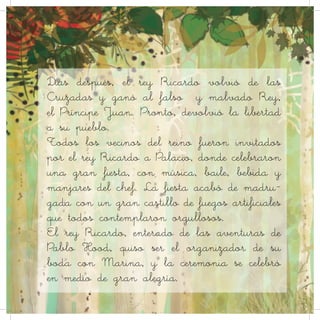 Días después, el rey Ricardo volvió de las
Cruzadas y ganó al falso y malvado Rey,
el Príncipe Juan. Pronto, devolvió la libertad
a su pueblo.
Todos los vecinos del reino fueron invitados
por el rey Ricardo a Palacio, donde celebraron
una gran fiesta, con música, baile, bebida y
manjares del chef. La fiesta acabó de madru-
gada con un gran castillo de fuegos artificiales
que todos contemplaron orgullosos.
El rey Ricardo, enterado de las aventuras de
Pablo Hood, quiso ser el organizador de su
boda con Marina, y la ceremonia se celebró
en medio de gran alegría.